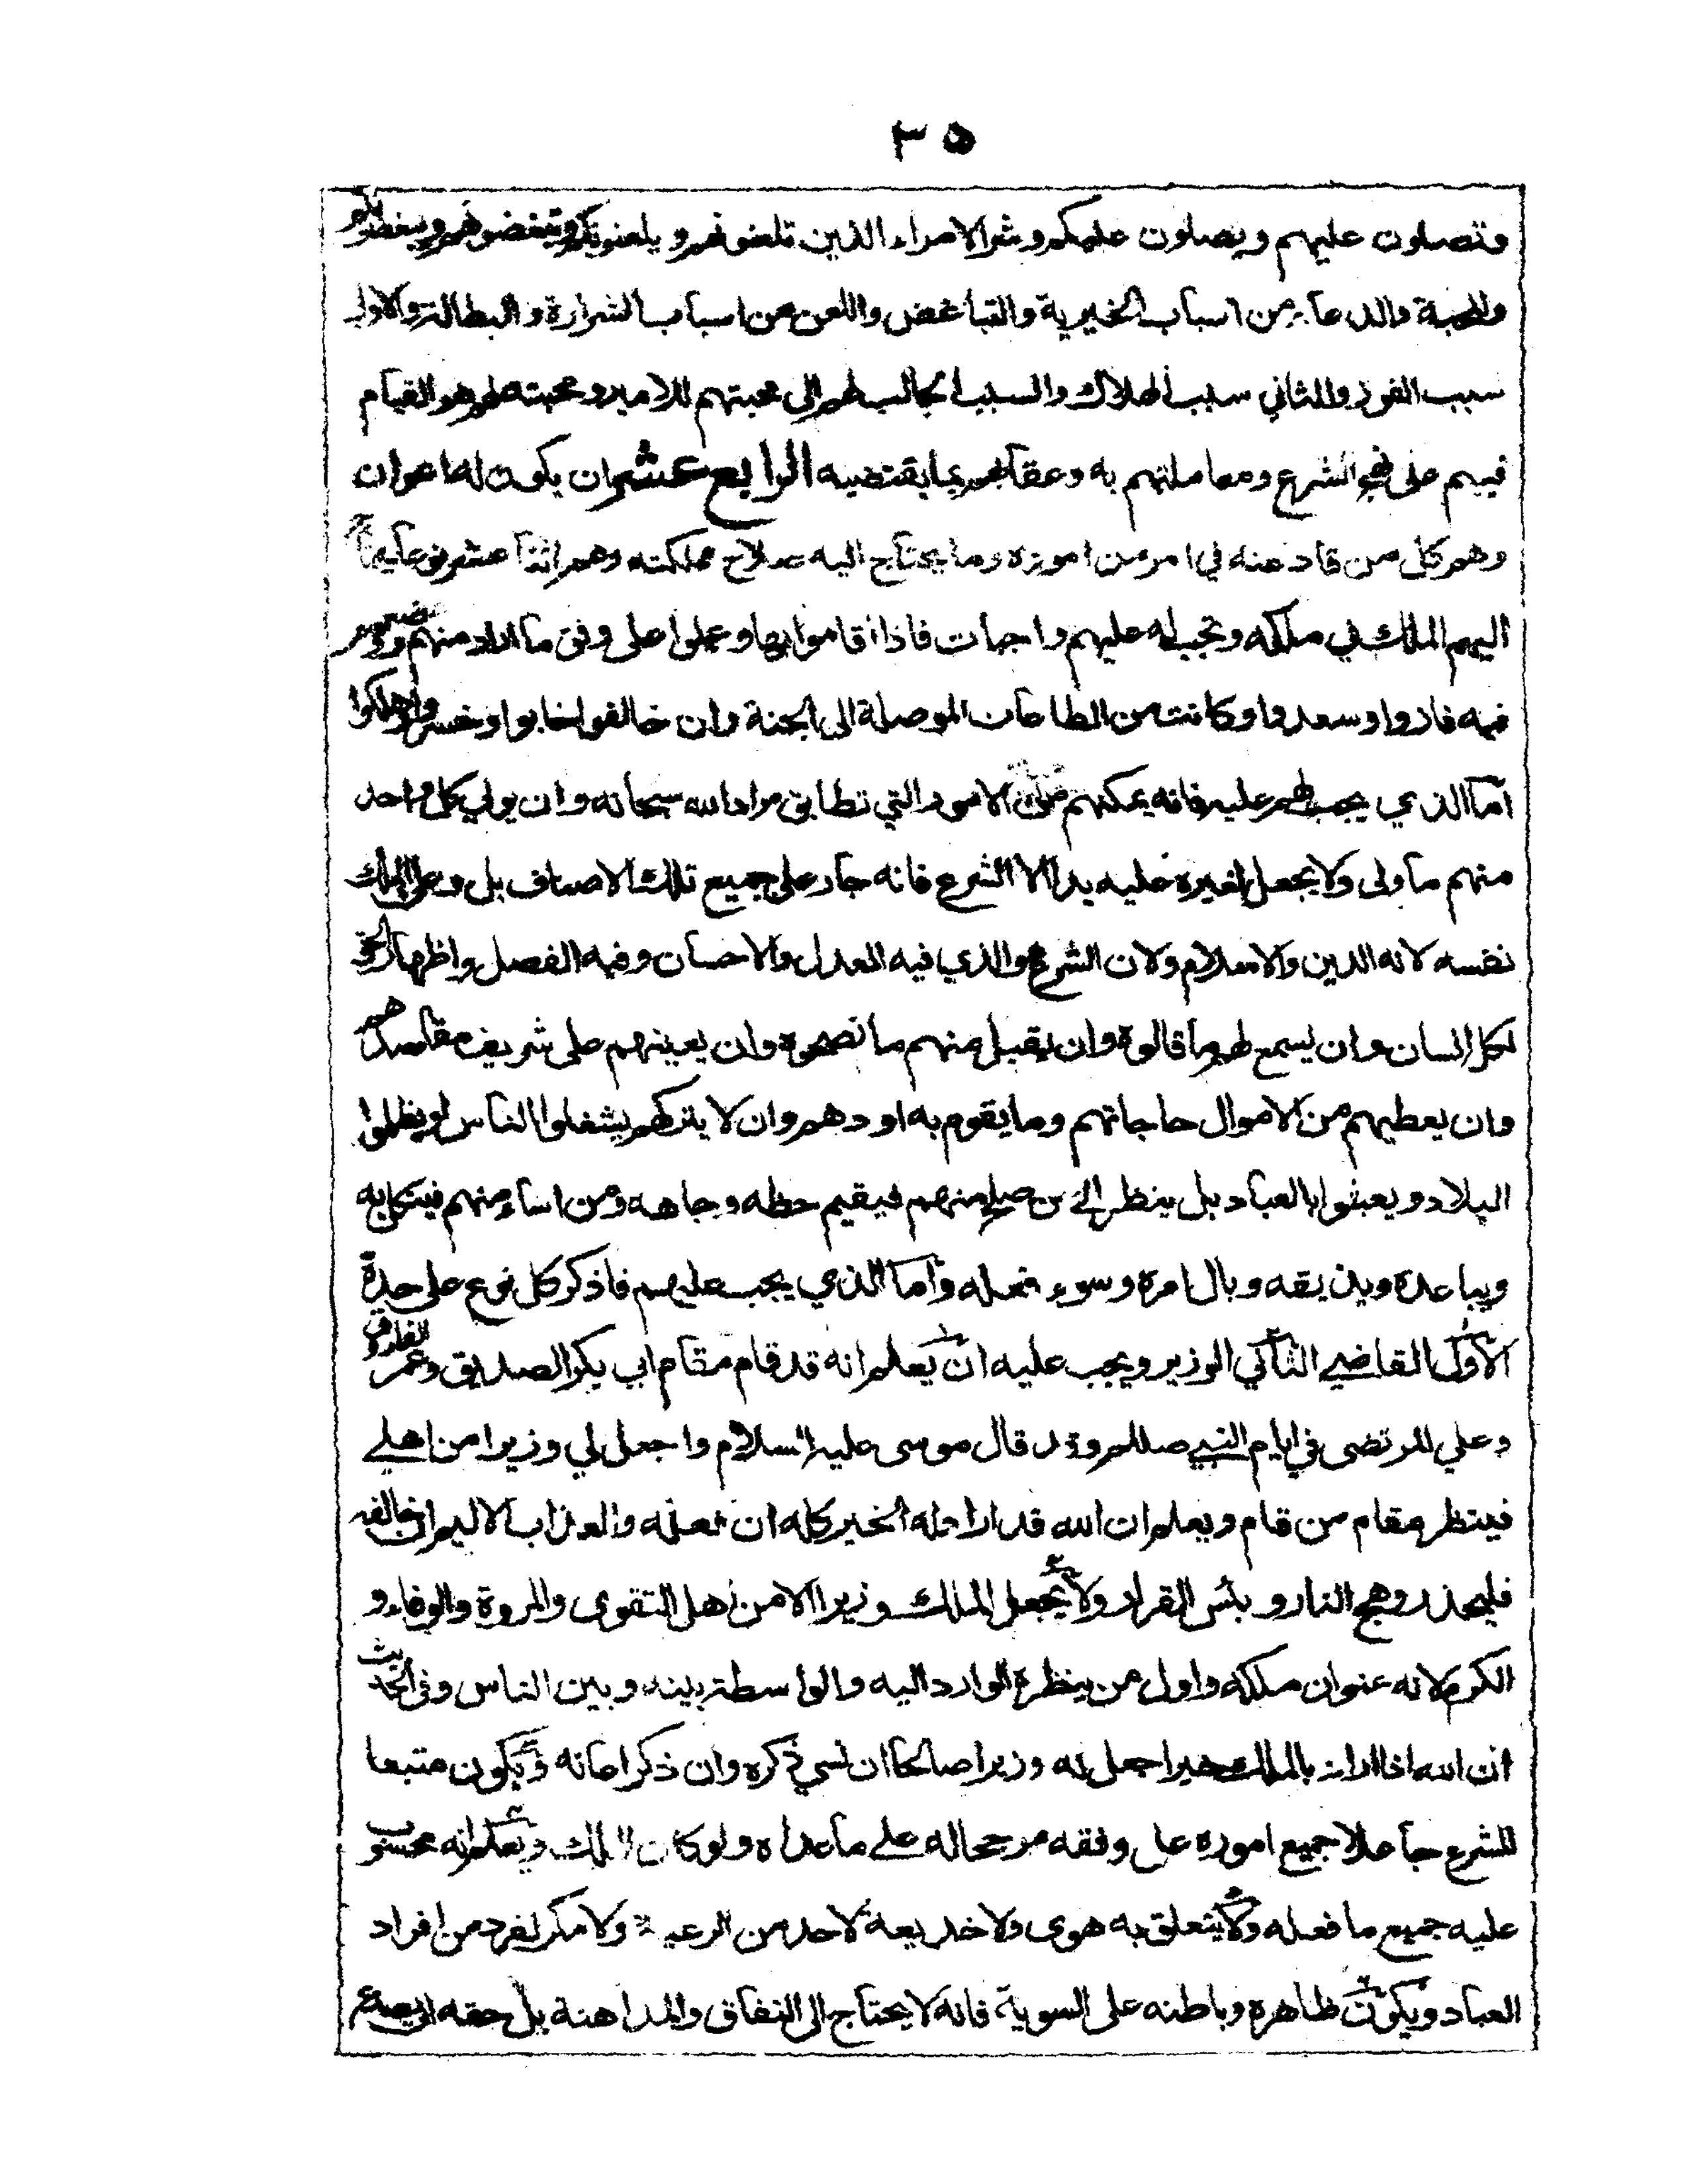 ٣٥
وتصلون عليهم ويصلون عليكم وشر الامراء الذين تلعنونهم ويلعنونكم وتبغضونهم ويبغضونكم
والمحبة والدعآء من اسباب الخيرية والتباغض واللعن من اسباب الشرارة والبطالة والاول
سبب الفوز والثاني سبب الهلاك والسبب الجالب لهم الى محبتهم للامير ومحبته لهم هو القيام
فيهم على نهج الشرع ومعاملتهم به وعقابهم بما يقتضيه الرابع عشر ان يكون له اعوان
وهم كل من قاد عنه في امر من اموره وما يحتاج اليه صلاح مملكته وهم اثنا عشر نوعا
اليهم الملك في ملكه وتجب له عليهم واجبات فاذا قاموا بها وعملوا على وفق ما اراد منهم
فيه فازوا وسعدوا وكانت من الطاعات الموصلة الى الجنة وان خالفوا خابوا وخسروا وهلكوا
اما الذي يجب لهم عليه فانه يمكنهم من الامور التي تطابق مراد الله سبحانه وان يولي كل واحد
منهم ما ولى ولا يجعل لغيره عليه يدا الا الشرع فانه جار على جميع تلك الاصناف بل وعلى الملك
نفسه لانه الدين والاسلام ولان الشرع هو الذي فيه العدل والاحسان وفيه الفصل واظهار الحق
لكل انسان وان يسمع لهم ما قالوه وان يقبل منهم ما نصحوه وان يعينهم على شريف مقاصدهم
وان يعطيهم من الاموال حاجاتهم وما يقوم به اودهم وان لا يتركهم يشغلوا الناس او يظلموا
البلاد ويعبثوا بالعباد بل ينظر الى من صلح منهم فيقيم حظه وجاهه ومن اساء منهم فينكل به
ويباعده ويذيقه وبال امره وسوء فعله واما الذي يجب عليهم فاذكر كل نوع على حدة
الاول القاضي الثاني الوزير ويجب عليه ان يعلم انه قد قام مقام ابي بكر الصديق وعمر الفاروق
وعلي المرتضى في ايام النبي صللم وقد قال موسى عليه السلام واجعل لي وزيرا من اهلي
فينظر مقام من قام ويعلم ان الله قد اراد له الخير كله ان فعله والعذاب الاليم ان خالفه
فليحذر وهج النار وبئس القرار ولا يجعل الملك وزيرا الا من اهل التقوى والمروة والوفاء و
الكرم لانه عنوان ملكه واول من ينظره الوارد اليه والواسطة بينه وبين الناس وفي الحديث
ان الله اذا اراد بالملك خيرا جعل له وزيرا صالحا ان نسي ذكره وان ذكر اعانه ويكون متبعا
للشرع جاعلا جميع اموره على وفقه مرجحا له على ما عداه ولو كان الملك ويعلم انه محسوب
عليه جميع ما فعله ولا يتعلق به هوى ولا خديعة لاحد من الرعية ولا مكر لفرد من افراد
العباد ويكون ظاهره وباطنه على السوية فانه لا يحتاج الى النفاق والمداهنة بل حقه ان يصدع